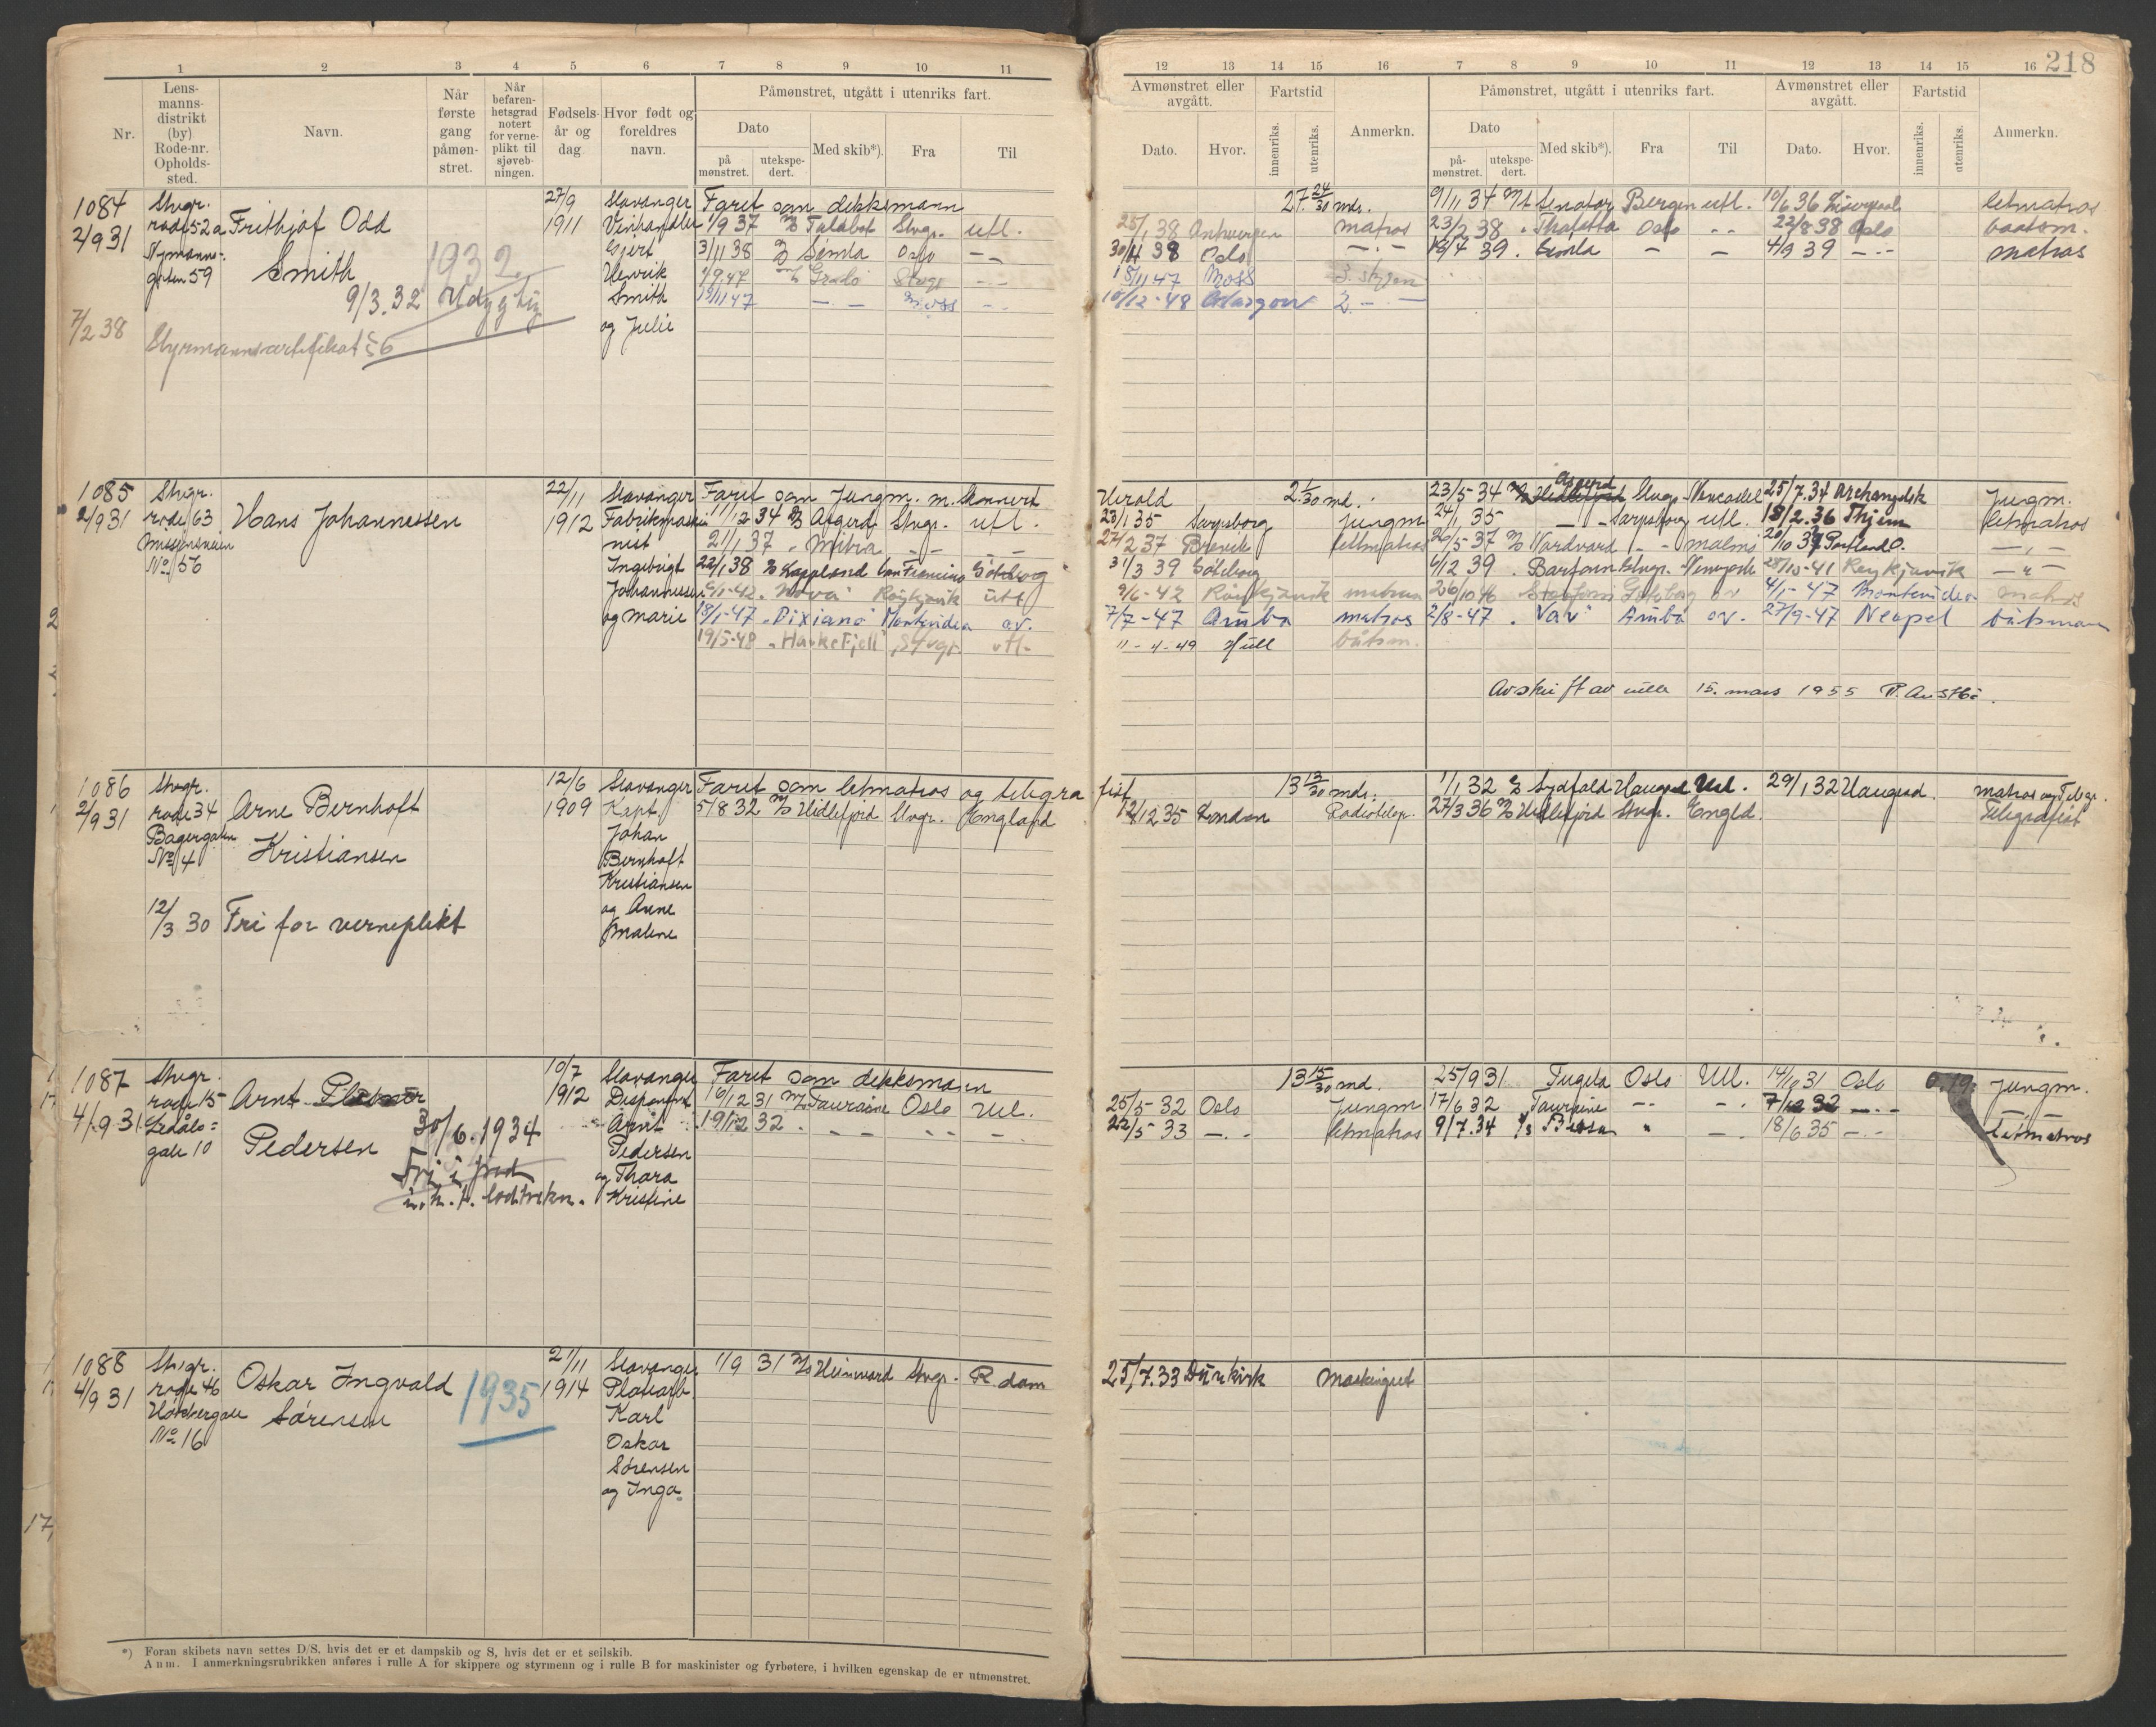 218
1 2 3 4 5 6 7 8 9 10 11
12 13 14 15 16 7 8 9 10 11 12 13 14 15 16
Nr.
Lens-
manns-
distrikt
(by)
Rode-nr.
Opholds-
sted.
Navn.
Når
første
gang
påmøn-
stret.
Når
befaren-
hetsgrad
notert
for verne-
plikt til
sjøveb-
ningen.
Fødsels-
år og
dag.
Hvor født og
foreldres
navn.
Påmønstret, utgått i utenriks fart.
Dato
på
mønstret.
utekspe-
dert.
Med skib*).
Fra
Til
Avmønstret eller
avgått.
Dato.
Hvor.
Fartstid
innenriks.
utenriks.
Anmerkn.
Påmønstret, utgått i utenriks fart.
Dato
på-
mønstret.
utekspe-
dert.
Med skib*).
Fra
Til
Avmønstret eller
avgått.
Dato.
Hvor.
Fartstid
innenriks.
utenriks.
Anmerkn.
1084
2/9 31
Stvgr.
rode 52a
Nymanns-
gaten 59
Frithjof Odd
Smith
1932
9/3.32 Udygtig
7/2 38 Styrmannscertifikat
27/9
1911
Stavanger
Vinhandler
Gjert
Henrik
Smith
og Julie
Faret som dekksmann 27 24/30 mdr.
1/9 37 Talabot Stvgr. utl. 25/1 38 Antwerpen matros
3/11 38 Simla Oslo — 30/11 38 Oslo —"—
Moss 3. styrm
19/11 47 — — Moss — 10/12-48 Glasgow 2 —
9/11 34 Senator Bergen utl. 10/6 36 Liverpool letmatros
23/2 38 Thalatta Oslo — 22/8 38 Oslo baatsm.
18/7 39 Simla — — 4/9 39 — matros
1085
2/9 31
Stvgr.
rode 63
Missionsveien
No 56
Hans Johannessen
22/11
1912
Stavanger
Fabrikmaski
nist
Ingebrigt
Johannessen
og Marie
Faret som Jungm. m. Skonnert Herold 2 1/30 md.
11/12 34 Asgerd Stvgr. utl. 23/1 35 Sarpsborg Jungm
21/1 37 Mitra — — — 27/2 37 Brevik letmatros
22/1 38 San Francisco Göteborg 31/3 39 Göteborg
6/1-42 "Nova" Reykjavik utl 9/6-42 Reykjavik matros
18/1-47 "Dixiano" Montevideo av. 7/7-47 Aruba matros
19/5-48 "Haukefjell" Stvgr. utl. 11-4-49 Hull båtsm.
23/5-34 Asgerd Stvgr. Newcastle 25/7.34 Archangelsk Jungm.
24/1 35 — Sarpsborg utl. 18/2.36 Thjem letmatros
26/5-37 Nordvard — — Malmö 20/10 37 Portland O. —"—
6/12 39 Stvgr. Newyork 28/10-41 Reykjavik —"—
26/10 46 Göteborg av 4/1-47 Montevideo matros
2/8-47 "Vav" Aruba av. 27/9-47 Neapel båtsmann
Avskrift av rulle 15. mars 1955
1086
2/9 31
Stvgr.
rode 34
Bagergaten
No 4
Arne Bernhoft
Kristiansen
12/3 30 Fri for verneplikt
12/6
1909
Stavanger
Kapt.
Johan
Bernhoft
Kristiansen
og Anne
Malene
Faret som letmatros og telegrafist 13 13/30 mdr.
5/8 32 Hidlefjord Stvgr. England 12/12 35 London Radiotelegr.
1/1 32 Sydfold Haugesd Utl. 29/1 32 Haugesd. matros og Telegr.
27/3 36 Hidlefjord Stvgr. Engld. Telegrafist
1087
4/9 31
Stvgr.
rode 15
Ledåls-
gate 10
Arnt
Pedersen
30/6.1934
Fri i fred
m. h. t. loddtrekn.
10/7
1912
Stavanger
Disponent
Arnt
Pedersen
og Thora
Kristine
Faret som dekksmann 13 15/30 md.
16/12 31 Touraine Oslo Utl. 25/5-32 Oslo Jungm
19/12 32 — — — 22/5 33 — letmatros
25/9 31 Tugela Oslo Utl. 14/10 31 Oslo Jungm.
17/6 32 Touraine — — —
9/7.34 — 18/6 35 — letmatros
1088
4/9 31
Stvgr.
rode 46
No 16
Oskar Ingvald
Sørensen
1935
21/11
1914
Stavanger
Platearb.
Karl
Oskar
Sørensen
og Inga
1/9 31 Heimvard Stvgr. R.dam 25/7.33 Dünkirk Maskingut
*) Foran skibets navn settes D/S, hvis det er et dampskib og S, hvis det er et seilskib.
Anm. I anmerkningsrubrikken anføres i rulle A for skippere og styrmenn og i rulle B for maskinister og fyrbøtere, i hvilken egenskap de er utmønstret.